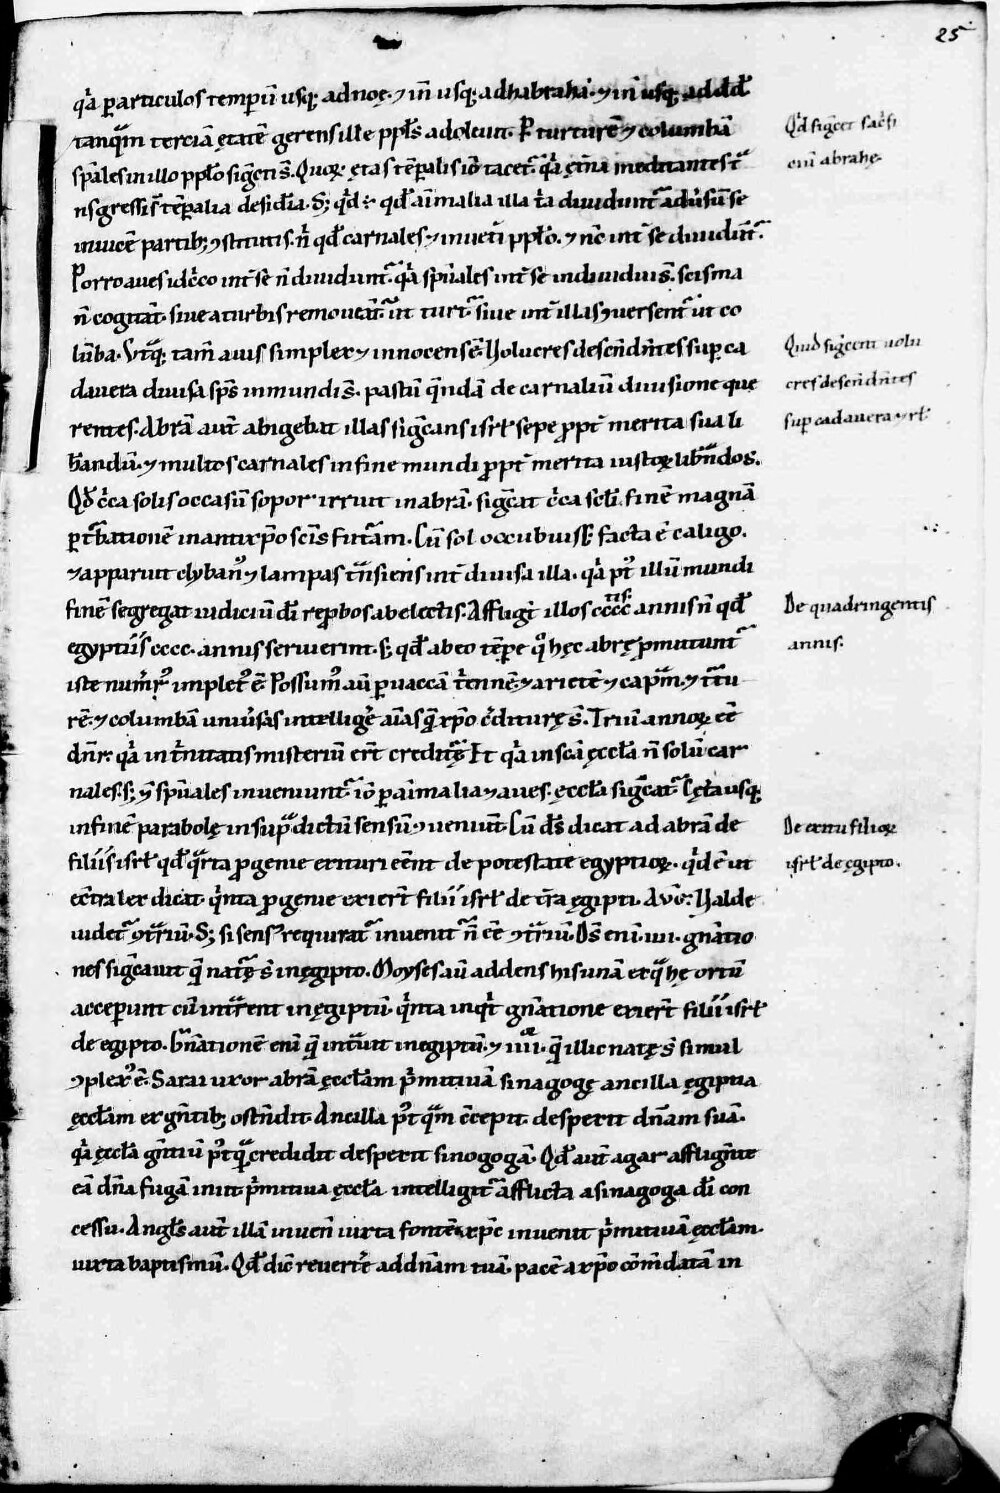 25
q'a particulos temporũ usq; ad noę. ⁊ iñ usq; ad habrahã. ⁊ iñ usq; ad dđ
tanquã terciã ętatẽ gerens ille ppłs adoleuit. Per turturẽ ⁊ columbã
sp̃ales in illo ppło sig̃cti s̃. Quoꝝ ętas tẽꝑalis iõ tacet᷑. q'a ęt̃na meditantes t᷑
nsgressi s̃ tẽꝑalia desid̃ia. S; q'd ÷ qđ aĩmalia illa t̃a diuidunt᷑ aduersũ se
inuicẽ partib; ꝯstitutis. ñ qđ carnales ⁊ in ueti ppło. ⁊ nc̃ int̃ se diuidũt᷑.
Porro aues idc̃co int̃ se ñ diuidunt᷑. q'a sp̃uales int̃ se indiuidui s̃. scisma
ñ cogitãt. siue a turbis remoueãt᷑ ut turt᷑. siue int̃ illas ꝯuersent᷑ ut co
lũba. Vtraq; tam̃ auis simplex ⁊ innocens ẽ. Volucres descñd̃ntes suꝑ ca
dauera diuisa sp̃s inmundi s̃. pastũ q̃ndã de carnaliũ diuisione que
rentes. Abrã aut̃ abigebat illas sig̃cans isrł sepe ꝓpt̃ merita sua li
b̃andũ. ⁊ multos carnales in fine mundi ꝓpt̃ merita iustoꝝ lib̃ndos.
Qđ c̃ca solis occasũ sopor irruit in abrã. sig̃cat c̃ca secłi finẽ magnã
ꝑt᷑bationẽ in antixp̃o sc̃is futurã. Cũ sol occubuiss& facta ẽ caligo.
⁊ apparuit clybanꝰ ⁊ lampas t᷑nsiens int̃ diuisa illa. q'a pꝰt illũ mundi
finẽ segregat iudiciũ dĩ reꝓbos ab electis. Affligi illos cccc.tis annis ñ qđ
egyptiis cccc. annis seruierint. s; qđ ab eo tẽꝑe q̊ hęc abrę ꝓmittunt᷑
iste numerꝰ impletꝰ ẽ. Possumꝰ aũ ꝑ uaccã t̃ennẽ. ⁊ arietẽ ⁊ cap᷑m. ⁊ t᷑tu
rẽ. ⁊ columbã uniũsas intelligẽ aĩas q̃ xp̃o c̃diturę s̃. Triũ annoꝝ eẽ
dñr. q'a in t̃nitatis misteriũ er̃t creditur̃ę. Et q'a in sc̃ã ęccła ñ solũ car
nales. s; ⁊ sp̃uales inueniunt᷑. iõ ꝑ aĩmalia ⁊ aues. ęccła sig̃cat᷑. Cęta usq;
in finẽ parabolę in sup᷑dictũ sensũ ꝯueniunt. Cũ dš dicat ad abrã de
filiis isrł qđ q᷑rta ꝓgenie exituri eẽnt de potestate egyptioꝝ. q'd ẽ ut
ec̃tra lex dicat. q'nta ꝓgenie exier̃t filii isrł de t̃ra ęgipti. Avg̃: Valde
uidet᷑ ꝯt᷑riũ. S; si sensꝰ requirat᷑ inuenit᷑ ñ eẽ ꝯt᷑riũ. Dš eni. iiii. gñatio
nes sig̃cauit q̃ natę s̃ in ęgipto. Moyses aũ addens his unã ex q᷑ hę ortũ
acceꝑunt cũ int᷑rent in ęgiptũ. q'nta inq't gñatione exier̃t filii isrł
de egipto. Gñationẽ eni q̃ int᷑uit in egiptũ. ⁊ iiii. q̃ illic natę s̃ simul
ꝯplexꝰ ẽ. Sarai uxor abrã ęccłam p'mitiuã sinagogę ancilla ęgiptia
ęccłam ex gñtib; ostñdit. Ancilla pꝰt quã c̃cepit. desperit dñam suã.
q'a ęccła gñtiũ pꝰt q᷑ credidit desperit sinogogã. Qđ aut̃ agar affligñte
eã dñа fugã iniit p'mitiua ęccła intelligit᷑ afflicta a sinagoga dĩ con
cessu. Angłs aut̃ illã inueñ iuxta fontẽ. ⁊ xp̃c inuenit p'mitiuã ęccłam.
iuxta baptismũ. Qđ dic̃ reuert̃e ad dñam tuã. pacẽ a xp̃o cõm̃datã in
Qđ sig̃cet sac̃fi
ciũ abrahę.
Quid sig̃cent uolu
cres descñd̃ntes
suꝑ cadauera ⁊ rł
De quadringentis
annis.
De exitu filioꝝ
isrł de ęgipto.